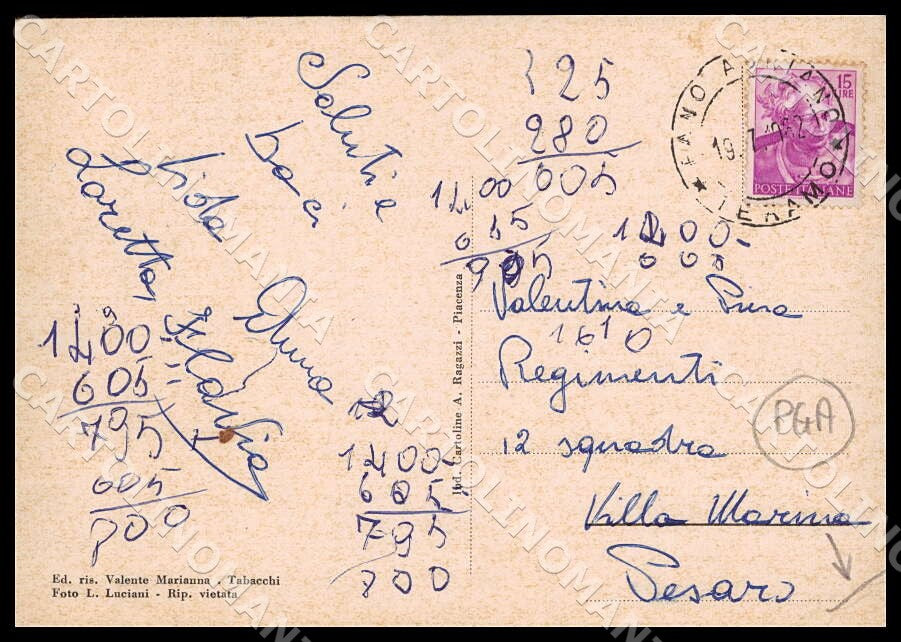 Saluti e
baci
Viola
Loretta,
Emma
Flavia
325
280
605
1400
615
905
1400-
605
1610
1400
605
795
605
800
12
1400-
605
795
800
Valentina e Pina
Regimenti
12 squadra
Villa Marina
Pesaro
PGA
15
LIRE
POSTE ITALIANE
FANO ADRIANO
19.7.1962
TERAMO
Ind. Cartoline A. Ragazzi - Piacenza
Ed. ris. Valente Marianna . Tabacchi
Foto L. Luciani - Rip. vietata
CARTOLINOMANIA